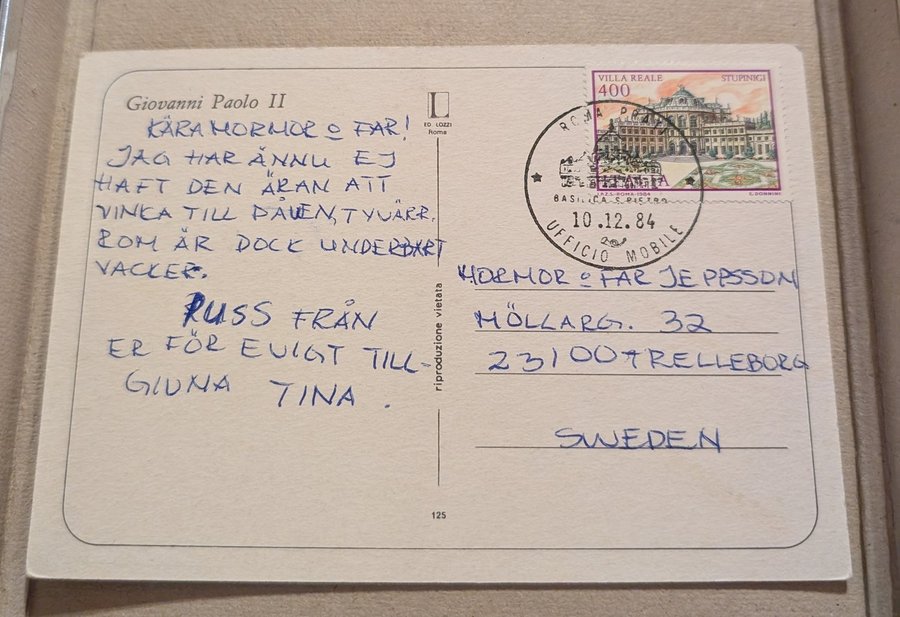 Giovanni Paolo II
KÄRA MORMOR o FAR!
JAG HAR ÄNNU EJ
HAFT DEN ÄRAN ATT
VINKA TILL PÅVEN, TYVÄRR.
ROM ÄR DOCK UNDERBART
VACKER.
PUSS FRÅN
ER FÖR EVIGT TILL-
GIVNA TINA.
L
ED. LOZZI
Roma
riproduzione vietata
125
VILLA REALE STUPINIGI
400
ITALIA
I.P.Z.S. - ROMA - 1984 E. DONNINI
ROMA PRATI
BASILICA S. PIETRO
10.12.84
UFFICIO MOBILE
MORMOR o FAR JEPPSSON
MÖLLARG. 32
23100 TRELLEBORG
SWEDEN